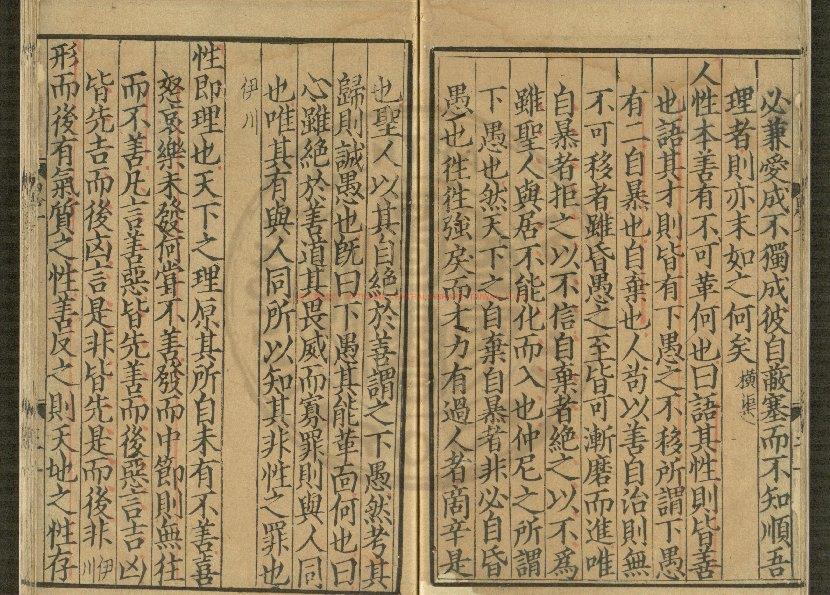 必兼愛成不獨成彼自蔽塞而不知順吾
理者則亦末如之何矣 橫渠
人性本善有不可革何也曰語其性則皆善
也語其才則皆有下愚之不移所謂下愚
有二自暴也自棄也人苟以善自治則無
不可移者雖昏愚之至皆可漸磨而進唯
自暴者拒之以不信自棄者絕之以不為
雖聖人與居不能化而入也仲尼之所謂
下愚也然天下之自棄自暴者非必自昏
愚也往往強戾而才力有過人者商辛是
也聖人以其自絕於善謂之下愚然考其
歸則誠愚也既曰下愚其能革面何也曰
心雖絕於善道其畏威而寡罪則與人同
也唯其有與人同所以知其非性之罪也
伊川
性即理也天下之理原其所自未有不善喜
怒哀樂未發何嘗不善發而中節則無往
而不善凡言善惡皆先善而後惡言吉凶
皆先吉而後凶言是非皆先是而後非 伊川
形而後有氣質之性善反之則天地之性存